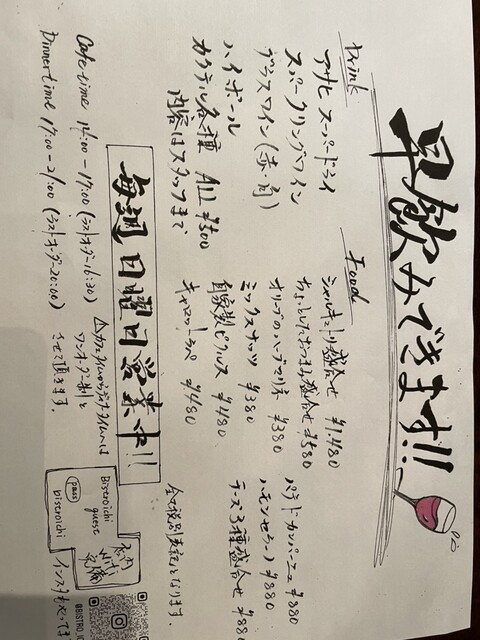 早飲みできます!!
Drink
アサヒ スーパードライ
スパークリングワイン
グラスワイン(赤・白)
ハイボール
カクテル各種 All ¥500
内容はスタッフまで
Food
シャルキュトリ盛合せ ¥1,480
ちょっとしたおつまみ盛合せ ¥580
オリーブのハーブマリネ ¥380
ミックスナッツ ¥380
自家製ピクルス ¥480
キャロットラペ ¥480
パテドカンパーニュ ¥880
ハモンセラーノ ¥880
チーズ3種盛合せ ¥880
全て税別表記となります
毎週日曜日営業中!!
Cafe time 14:00-17:00 (ラストオーダー16:30)
Dinner time 17:00-21:00 (ラストオーダー20:00)
ワンオーダー制と
させて頂きます。
Wifi
完備
Bistroichi
guest
pass
bistroichi
インスタもやってます
@BISTRO